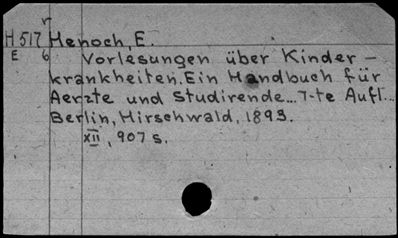 H 517 Henoch, E.
E 6 Vorlesungen über Kinder-
krankheiten. Ein Handbuch für
Aerzte und Studirende... 7-te Aufl...
Berlin, Hirschwald, 1893.
XII, 907 s.